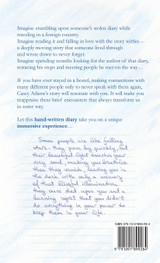 Imagine stumbling upon someone's stolen diary while
traveling in a foreign country.
Imagine reading it and falling in love with the story within –
a deeply moving story that someone lived through
and wrote down to never forget.
Imagine spending months looking for the author of that diary,
retracing his steps and meeting people he met on the way…
If you have ever stayed in a hostel, making connections with
many different people only to never speak with them again,
Casey Adams's story will resonate with you. It will make you
reappraise these brief encounters that always transform us
in some way.
Let this hand-written diary take you on a unique
immersive experience…
Some people are like falling
stars. They pass by quickly, but
their beautiful light touches your
very soul, making you breathless.
Then they vanish, leaving you in
the dark with only a memory
of that blissful illumination.